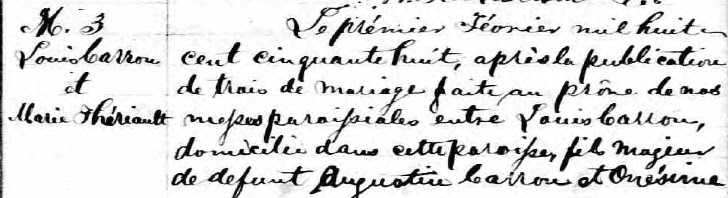 M. 3
Louis Carron
et
Marie Thériault
Le prémier Féorier mil huit
cent cinquante huit, après la publication
de trais de mariage faite au prône de nos
messes paroissiales entre Louis Carron,
domicilié dans cette paroisse, fils majeur
de defunt Augustin Carron et Onésime